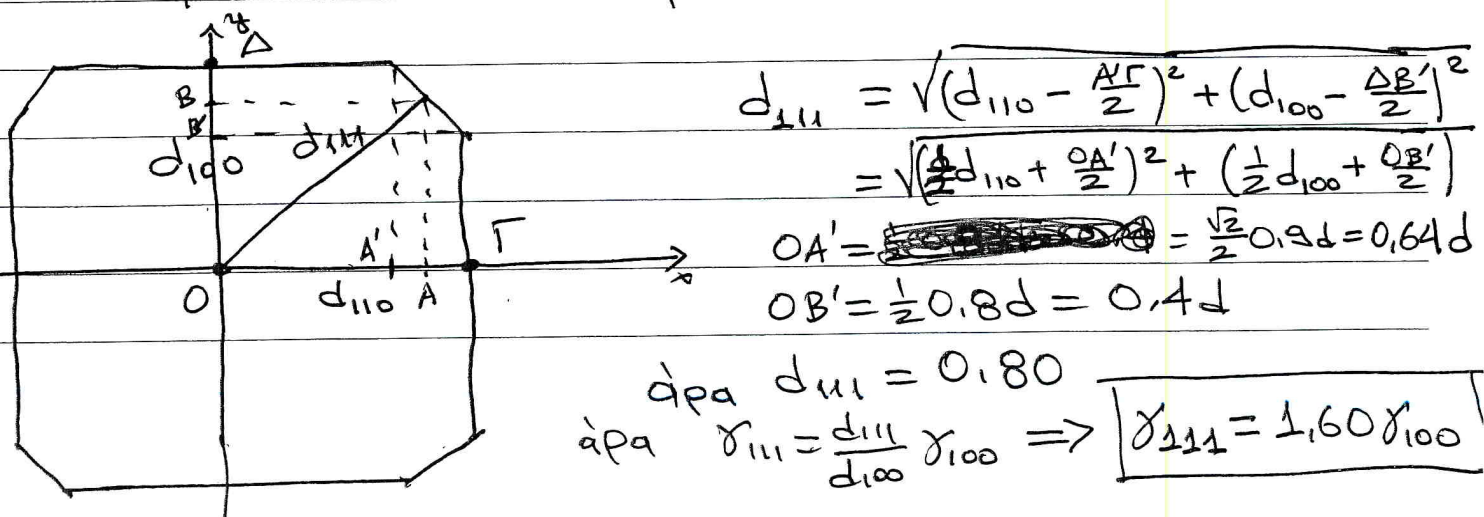 y
Δ
B
B'
d₁₀₀
d₁₁₁
A'
Γ
x
O
d₁₁₀
A
d₁₁₁ = √(d₁₁₀ - A'Γ/2)² + (d₁₀₀ - ΔB'/2)²
= √(1/2 d₁₁₀ + OA'/2)² + (1/2 d₁₀₀ + OB'/2)
OA' = = √2/2 0,9d = 0,64d
OB' = 1/2 0.8d = 0.4d
άρα d₁₁₁ = 0.80
άρα γ₁₁₁ = d₁₁₁/d₁₀₀ γ₁₀₀ => γ₁₁₁ = 1,60 γ₁₀₀